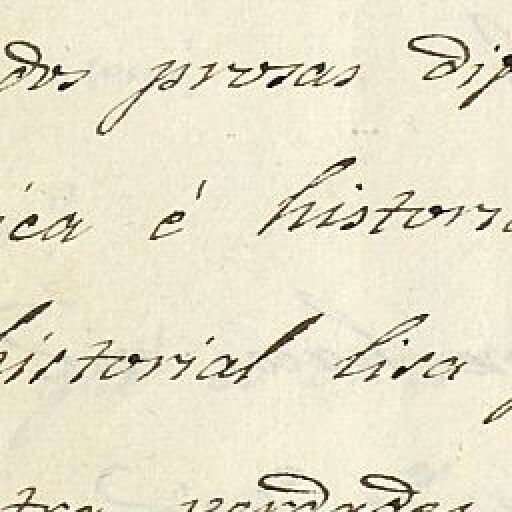 dos prosas dip
ica é histori
historial lisa
tra verdades